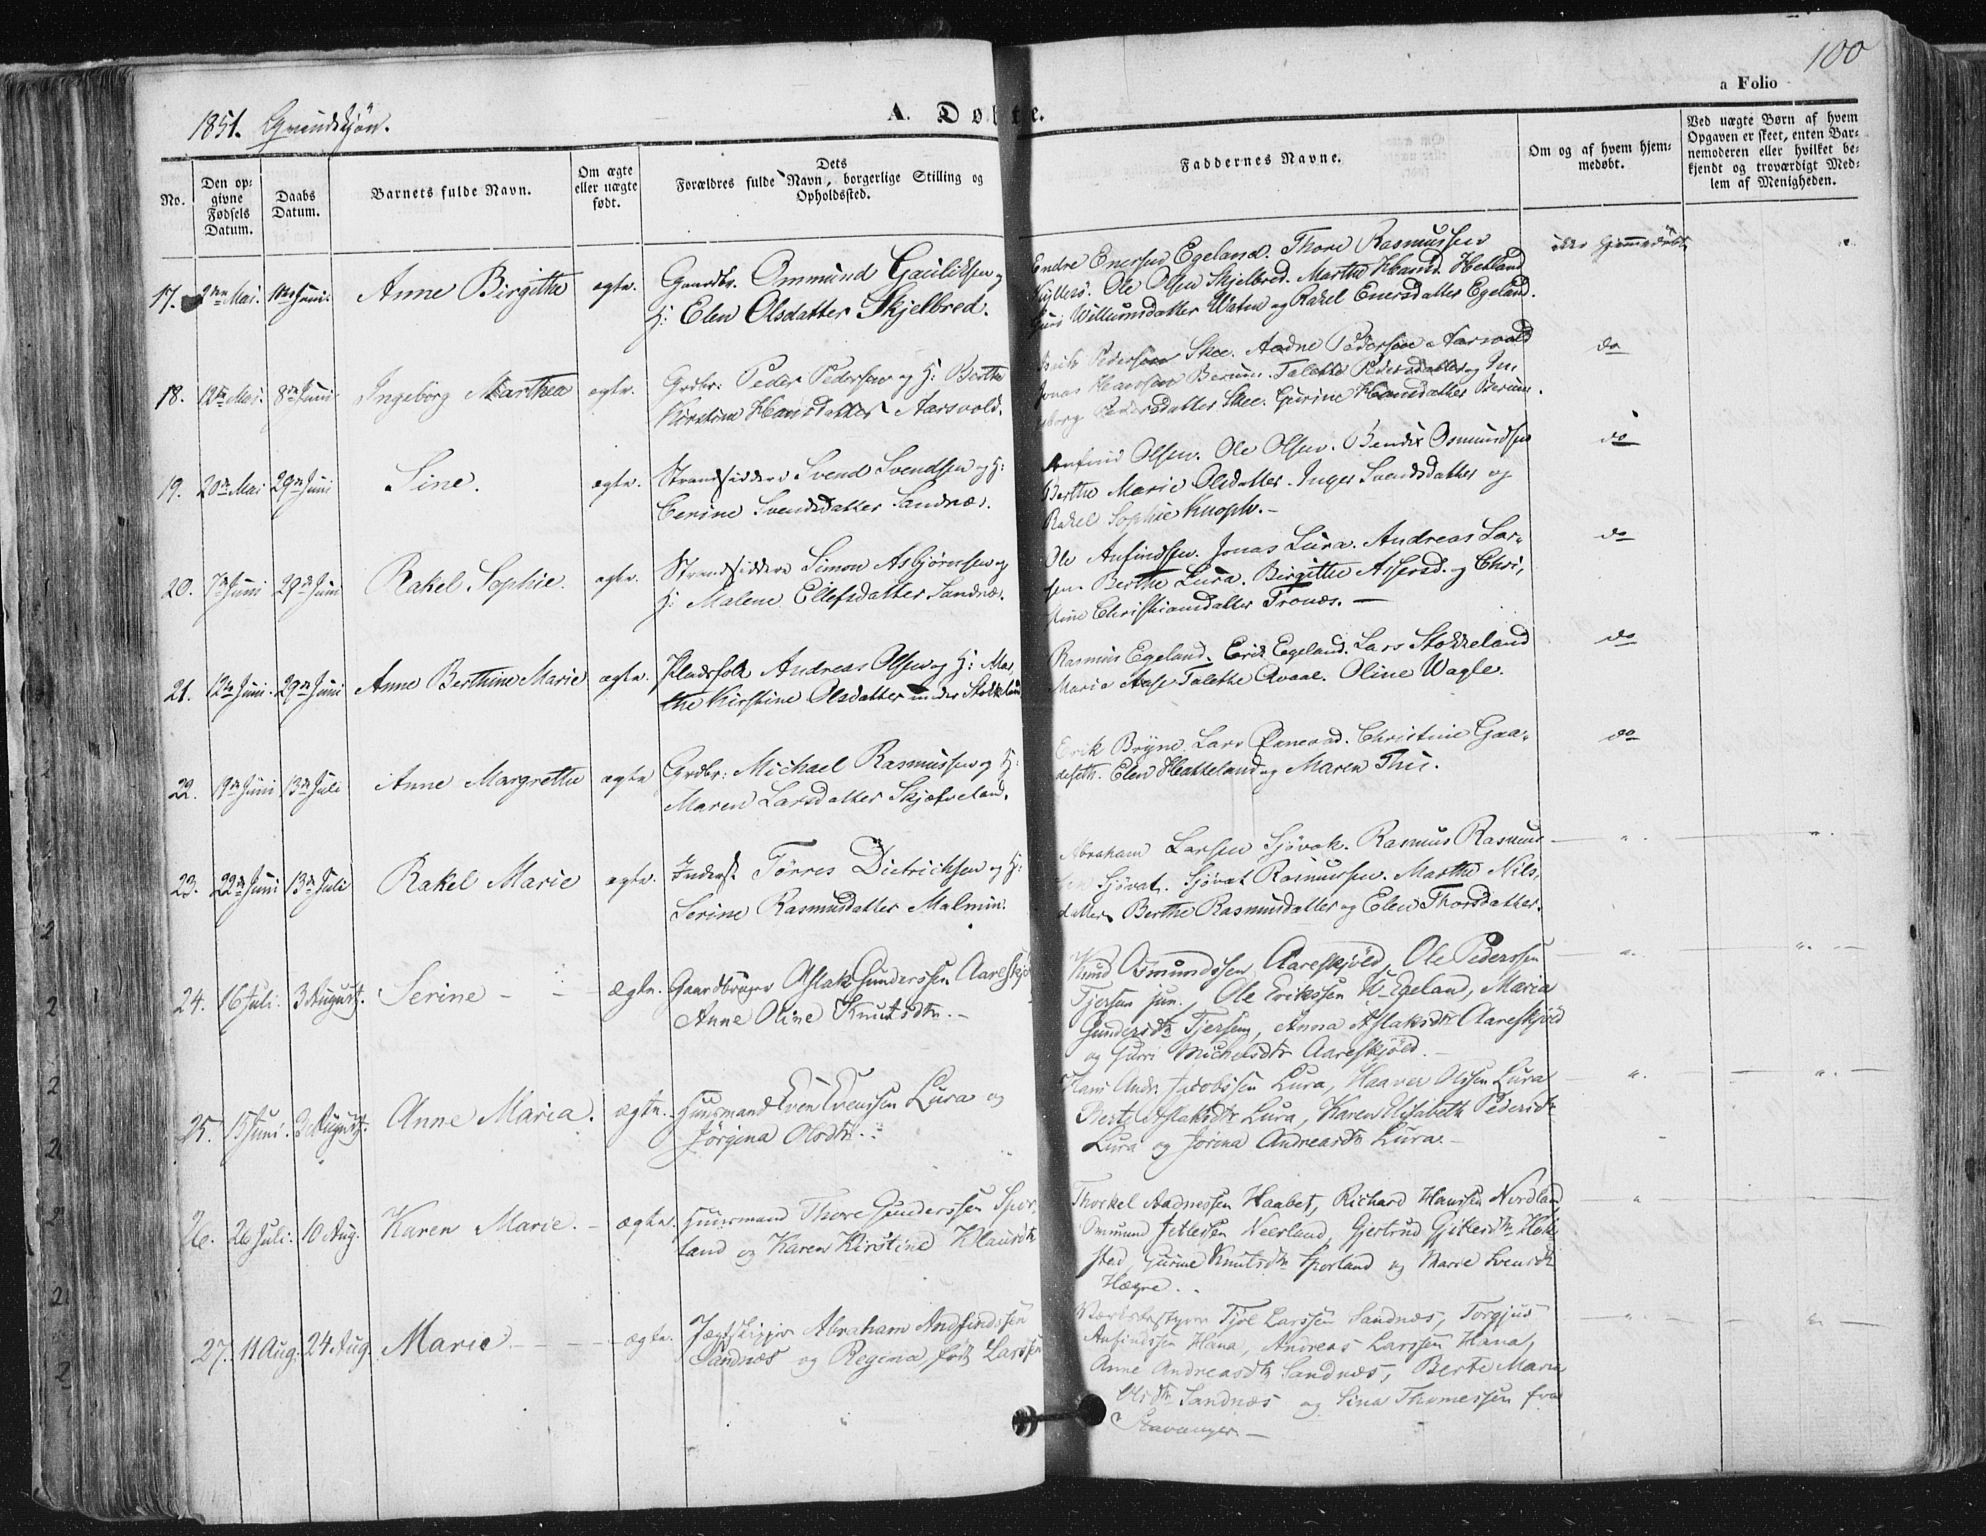 100
a Folio
1851. Qvindekjøn.
A. Døbte.
No.
Den op-
givne
Fødsels
Datum.
Daabs
Datum.
Barnets fulde Navn.
Om ægte
eller uægte
født.
Dets
Forældres fulde Navn, borgerlige Stilling og
Opholdssted.
Faddernes Navne.
Om og af hvem hjem-
medøbt.
Ved uægte Børn af hvem
Opgaven er skeet, enten Bar-
nemoderen eller hvilket be-
kjendt og troværdigt Med-
lem af Menigheden.
17. Mai. Juni. Anne Birgitha ægte. Gaardbr. Ommund
H: Elen Olsdatter Skjelbred.
Endre Enersen Egeland. Thore Rasmussen
Ole Olsen Skjelbred. Martha Hetland
Willumsdatter Watne og Rakel Enersdatter Egeland.
ikke hjemmedøbt
18. 12te Mai. 8de Juni Ingeborg Marthea ægte. Grdbr: Peder Pedersen og H: Berthe
Kirstine Hansdatter Aarsvold.
Pedersen Skee. Aadne Pedersen Aarsvold
Jonas Hanssen Berum. Talette Pedersdatter og In-
geborg Pedersdatter Skee. Gurine Hansdatter Berum.
do
19. 20de Mai 29de Juni Sine. ægte. Strandsidder Svend Svendsen og H:
Cerine Svendsdatter Sandnæs.
Anfind Olsen. Ole Olsen. Bendix Osmundsen
Berthe Marie Olsdatter. Inger Svendsdatter og
Rakel Sophie Knoph.
do
20. 7de Juni 29de Juni Rakel Sophie. ægte. Strandsidder Simon Asbjørnsen og
H: Malene Ellefsdatter Sandnæs.
Ole Anfindsen. Jonas Lura. Andreas Lar-
sen. Berthe Lura. Birgitte Assersd. og Chri-
stine Christiansdatter Tronæs. —
do
21. 12te Juni 29de Juni Anne Berthine Marie ægte. Pladsfolk Andreas Olsen og H: Mar-
the Kirstine Olsdatter under Stokkeland
Rasmus Egeland. Erik Egeland. Lars Stokkeland
Maria Aase Talethe Qvaal. Oline Wagle.
do
22. 9de Juni 13de Juli Anne Margrethe ægte Grdbr: Michael Rasmussen og H:
Maren Larsdatter Skjæveland.
Erik Bryne. Lars Christine Gaa-
deseth. Elen Hatteland og Maren Thu.
do
23. 22de Juni 13de Juli Rakel Marie ægte. Inderst Tørres Dietrichsen og H:
Serine Rasmusdatter Malmin.
Abraham Larsen Sjøvat. Rasmus Rasmus-
sen Sjøvat. Sjøvat Rasmussen. Marthe Nils-
datter, Berthe Rasmusdatter og Elen Thorsdatter.
24. 16 Juli. 3 August. Serine - - ægte. Gaardbruger Aslak Gunderssen Aareskjø
Anne Oline Knutsdtr. -
Knud Osmundssen Aareskjold, Ole Pederssen
Tjersen jun., Ole Erikssen Egeland, Maria
Gundersdtr Tjersem, Anna Aslaksdtr Aareskjold
og Gurri Michelsdtr Aareskjold.
25. 15 Juni. 3 August. Anne Maria. ægte. Huusmand Even Evenssen Lura og
Jørgina Olsdtr.
Hans Andr. Jacobssen Lura, Haaver Olssen Lura
Berte Aslaksdtr Lura, Karen Elisabeth Pedersdtr
Lura og Jorina Andreasdtr Lura. -
26. 26 Juli. 10 Aug. Karen Marie. - ægte. Huusmand Thore Gunderssen Spor-
land og Karen Kirstine Klausdtr
Thorkel Aadnessen Haabet, Richard Hanssen Nordland
Ommund Jetlessen Neerland, Gjertrud
Gurine Knutsdtr Sporland og Marie Svensdtr
Høgne.
27. 11 Aug. 24 Aug. Marie. - - - ægte. Jægtskipper Abraham Andfindssen
Sandnæs og Regina født Larssen
Tjøl Larssen Sandnæs, Torgjus
Anfindssen Hana, Andreas Larssen Hana,
Anne Andreasdtr Sandnæs, Berte Maria
Olsdtr Sandnæs og Sina Thomessen fra
Stavanger. —